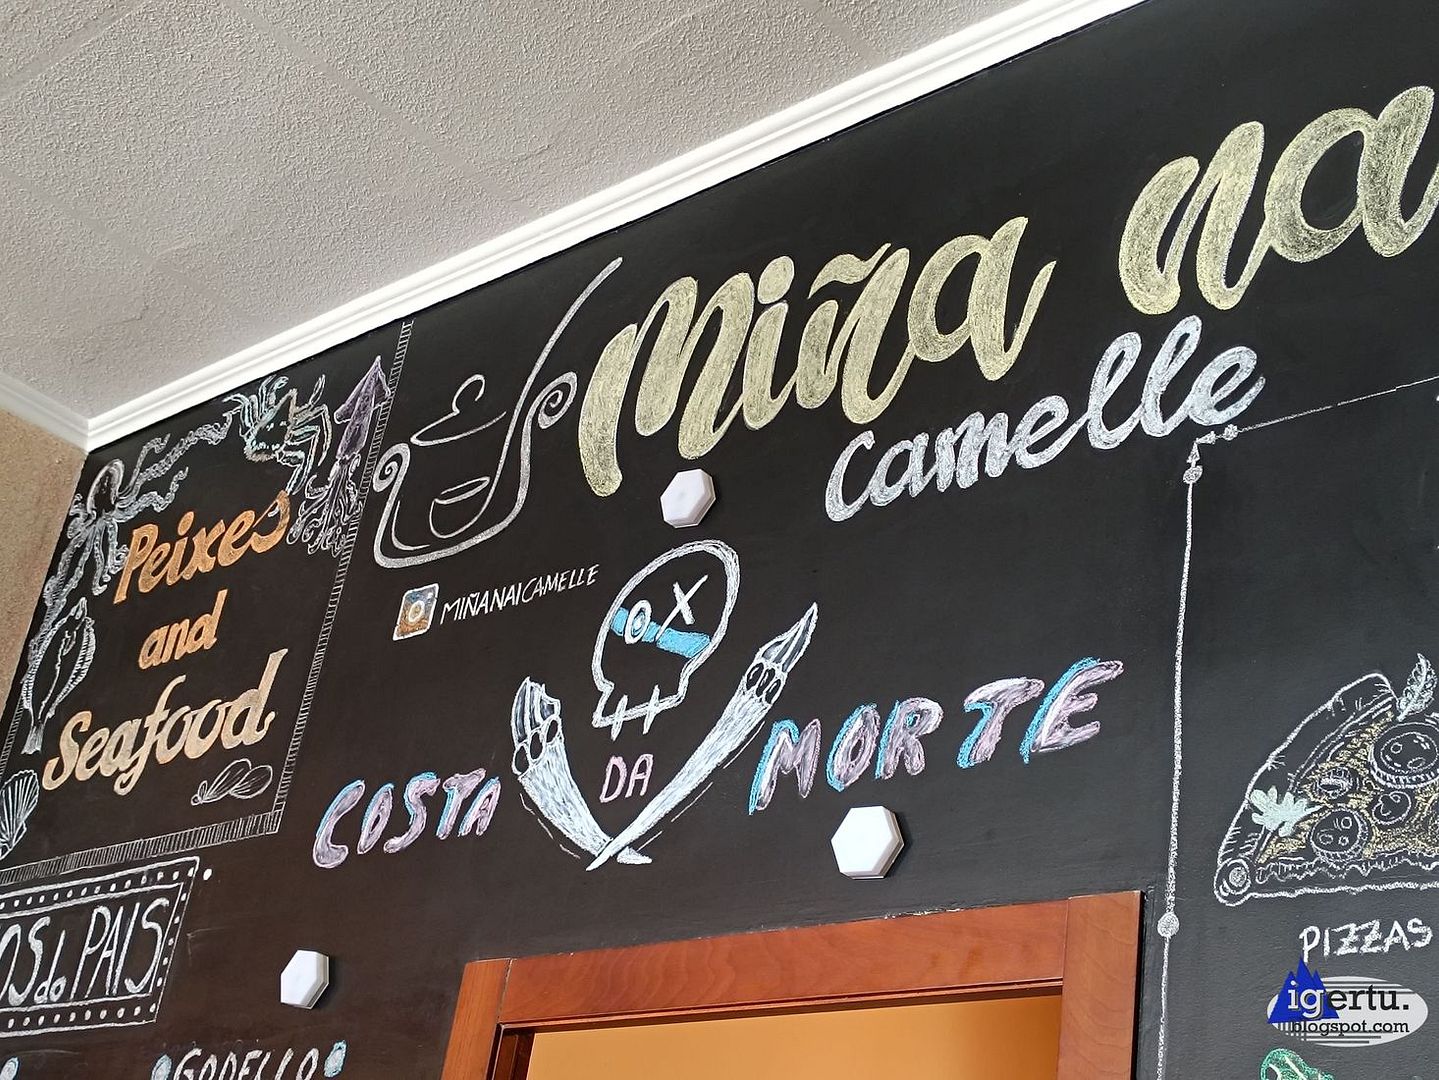 Miña na
Camelle
Peixes
and
Seafood
MIÑANAICAMELLE
COSTA DA MORTE
OS do PAIS
GODELLO
PIZZAS
igertu.
blogspot.com